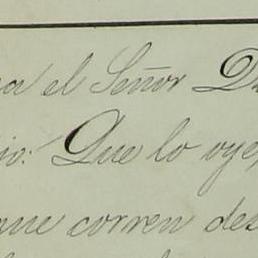 el Señor
Que lo oye
que corren des